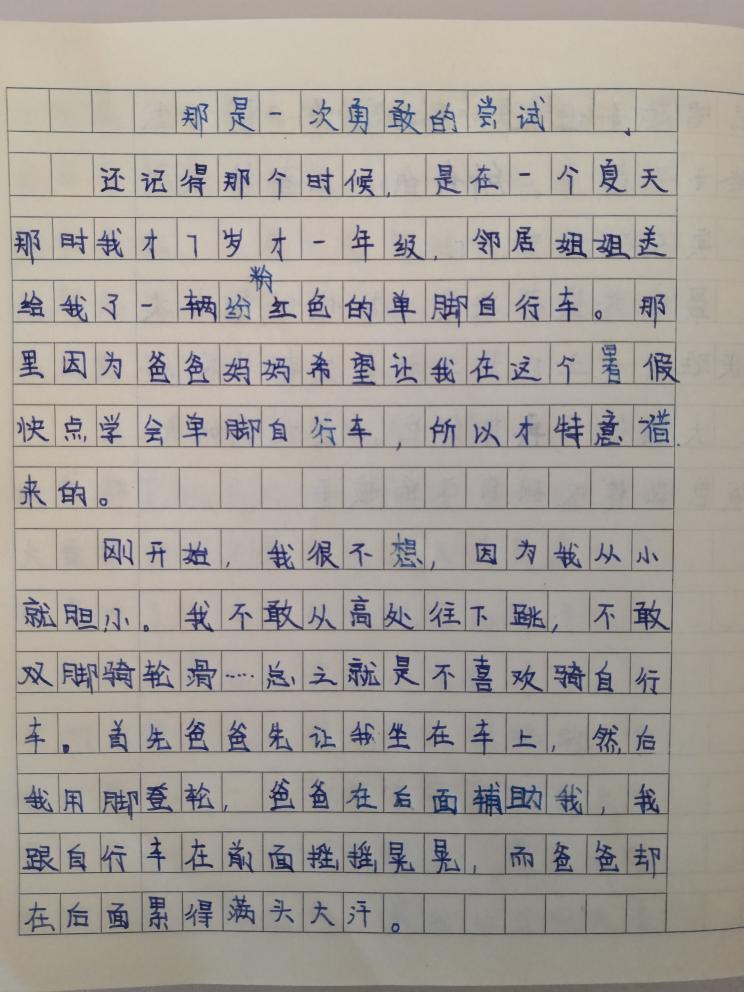 那是一次勇敢的尝试
还记得那个时候，是在一个夏天
那时我才7岁才一年级，邻居姐姐送
粉
给我了一辆纷红色的单脚自行车。那
里因为爸爸妈妈希望让我在这个暑假
快点学会单脚自行车，所以才特意借
来的。
刚开始，我很不想，因为我从小
就胆小。我不敢从高处往下跳，不敢
双脚骑轮滑……总之就是不喜欢骑自行
车。首先爸爸先让我坐在车上，然后
我用脚登轮，爸爸在后面辅助我，我
跟自行车在前面摇摇晃晃，而爸爸却
在后面累得满头大汗。